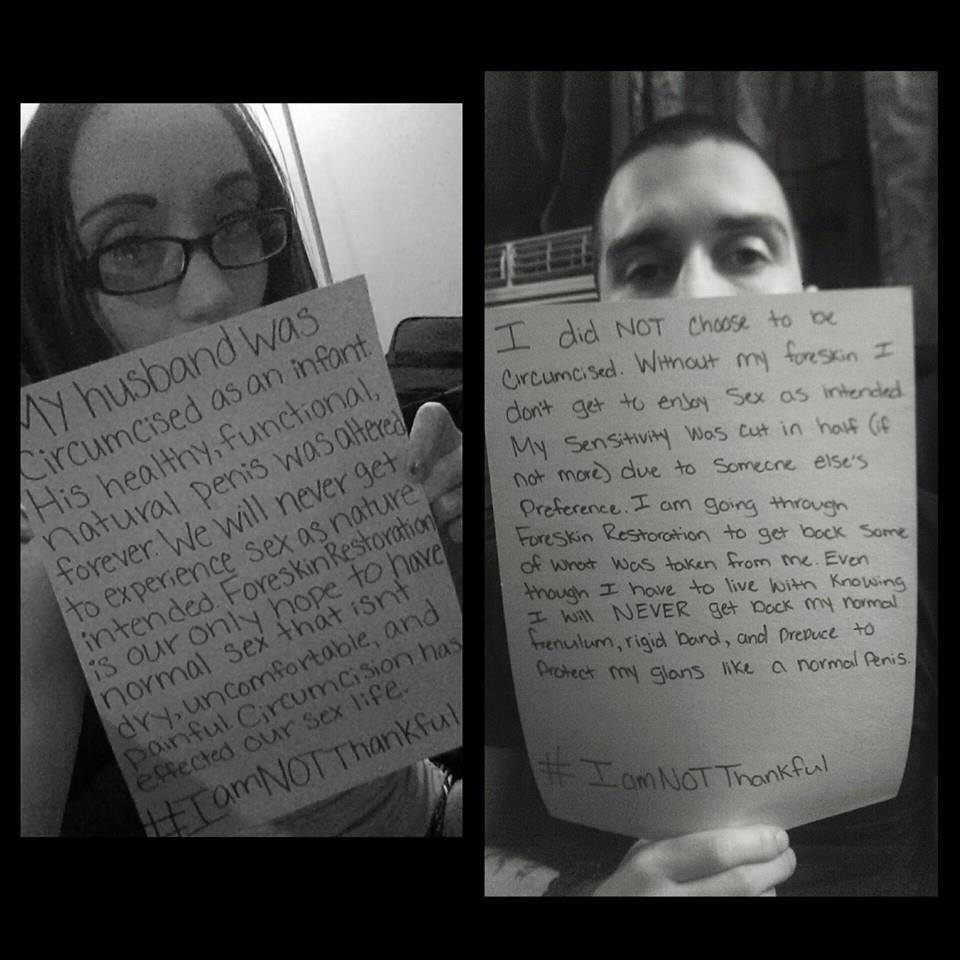 My husband was
circumcised as an infant.
His healthy, functional,
natural penis was altered
forever. We will never get
to experience sex as nature
intended. Foreskin Restoration
is our only hope to have
normal sex that isnt
dry, uncomfortable, and
painful. Circumcision has
effected our sex life.
#IamNOTThankful
I did NOT choose to be
Circumcised. Without my foreskin I
don't get to enjoy sex as intended.
My sensitivity was cut in half (if
not more) due to someone else's
Preference. I am going through
Foreskin Restoration to get back some
of what was taken from me. Even
though I have to live with knowing
I will NEVER get back my normal
frenulum, rigid band, and prepuce to
Protect my glans like a normal Penis.
#IamNOTThankful